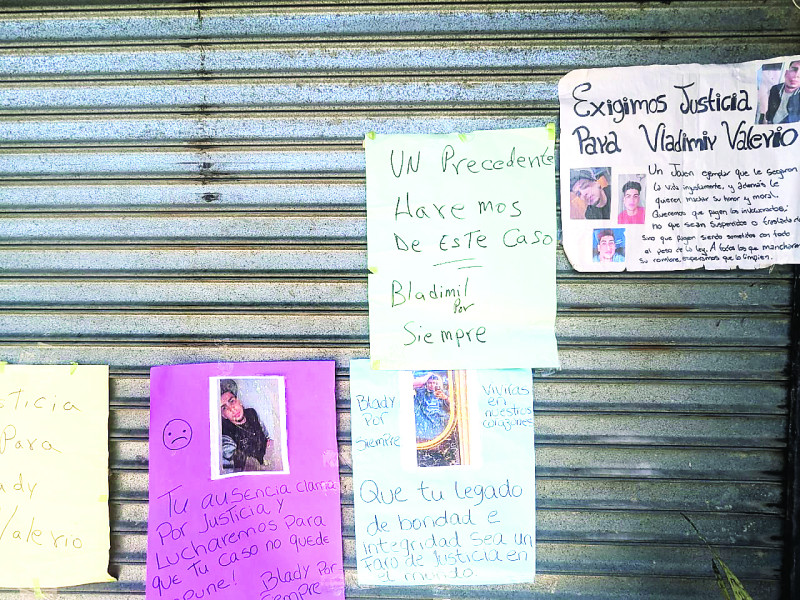 Exigimos Justicia
Para Vladimir Valerio
Un Joven ejemplar que le segaron
la vida injustamente, y además le
quieren manchar su honor y moral.
Queremos que paguen los involucrados,
no que sean suspendidos o
Sino que paguen siendo sometidos con todo
el peso de la ley. A todos los que mancharon
su nombre, esperamos que lo limpien.
UN Precedente
Haremos
De Este Caso
Bladimil
Por
Siempre
sticia
Para
ady
Valerio
Tu ausencia clama
Por Justicia y
Lucharemos Para
que Tu caso no quede
pune!
Blady Por
Siempre
Blady
Por
Siempre
Vivirás
en
nuestros
corazones
Que tu legado
de bondad e
integridad sea un
faro de Justicia en
el mundo.